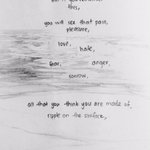 this,
you will see that pain,
pleasure,
love,
hate,
fear,
anger,
sorrow,
all that you think you are made of,
ripple on the surface,